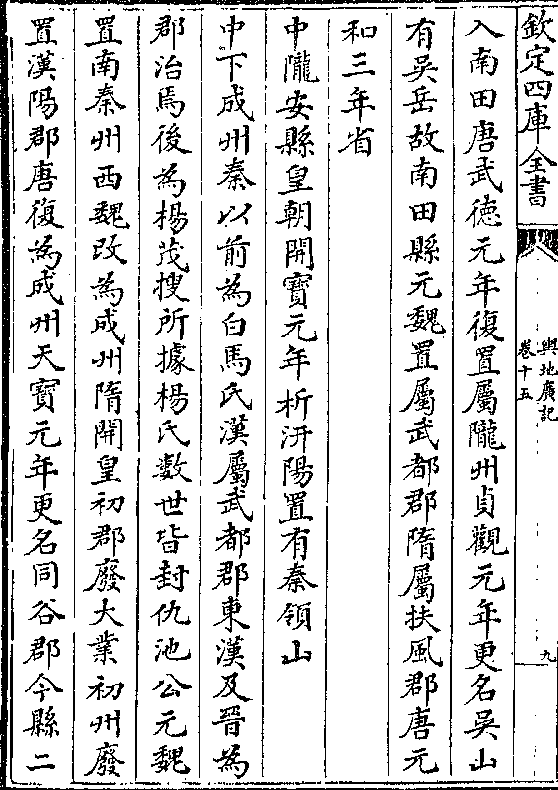 欽定四庫全書
輿地廣記
卷十五
九
入南田唐武德元年復置屬隴州貞觀元年更名吳山
有吳岳故南田縣元魏置屬武都郡隋屬扶風郡唐元
和三年省
中隴安縣皇朝開寶元年析汧陽置有秦領山
中下成州秦以前為白馬氐漢屬武都郡東漢及晉為
郡治焉後為楊茂搜所據楊氏數世皆封仇池公元魏
置南秦州西魏改為成州隋開皇初郡廢大業初州廢
置漢陽郡唐復為成州天寶元年更名同谷郡今縣二